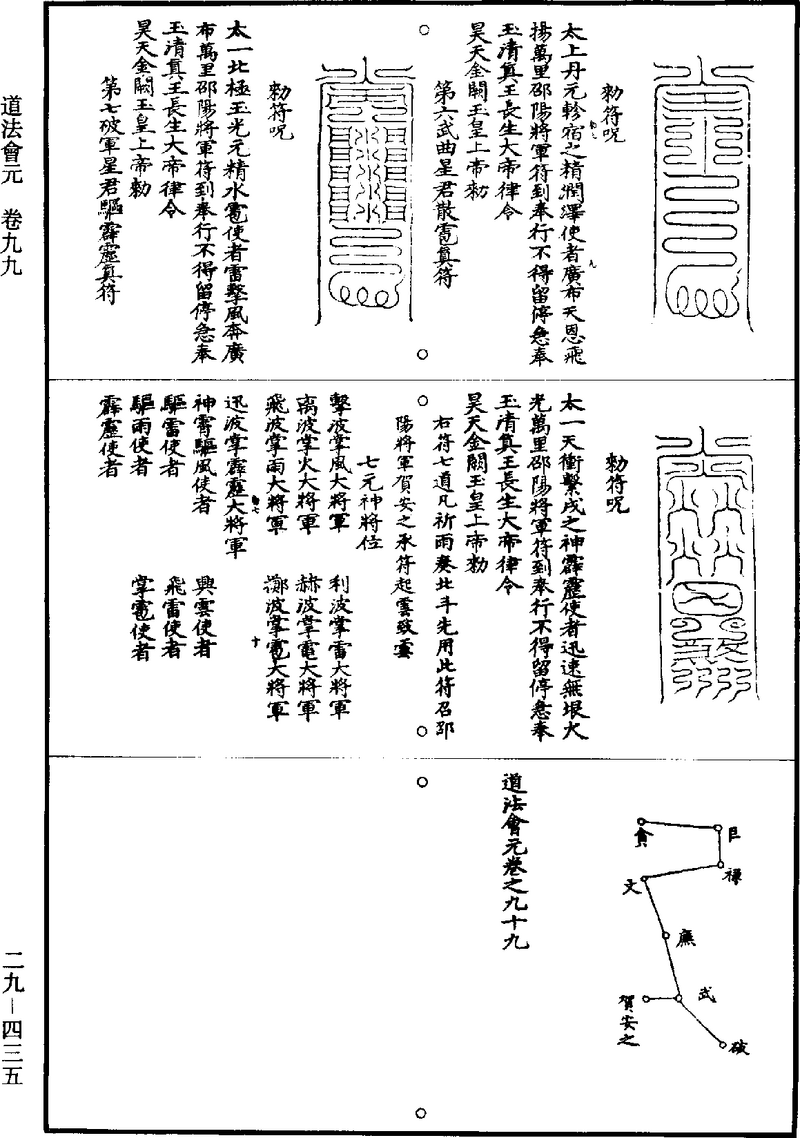 道法會元　卷九九
勑符呪
太上丹元軫宿之精潤澤使者廣布天恩飛
揚萬里邵陽將軍符到奉行不得留停急奉
玉清眞王長生大帝律令
昊天金闕玉皇上帝勑
第六武曲星君散雹眞符
勑符呪
太一北極玉光元精水雹使者雷擊風奔廣
布萬里邵陽將軍符到奉行不得留停急奉
玉清眞王長生大帝律令
昊天金闕玉皇上帝勑
第七破軍星君驅霹靂眞符
勑符呪
太一天衝繫戌之神霹靂使者迅速無垠火
光萬里邵陽將軍符到奉行不得留停急奉
玉清眞王長生大帝律令
昊天金闕玉皇上帝勑
右符七道凡祈雨奏北斗先用此符召邵
陽將軍賀安之承符起雲致雲
七元神將位
擊波掌風大將軍　利波掌雷大將軍
离波掌火大將軍　赫波掌電大將軍
飛波掌雨大將軍　擲波掌雹大將軍
迅波掌霹靂大將軍
神霄驅風使者　興雲使者
驅雷使者　飛雷使者
驅雨使者　掌雹使者
霹靂使者
貪
巨
祿
文
廉
武
賀安之
破
道法會元卷之九十九
二九—四三五